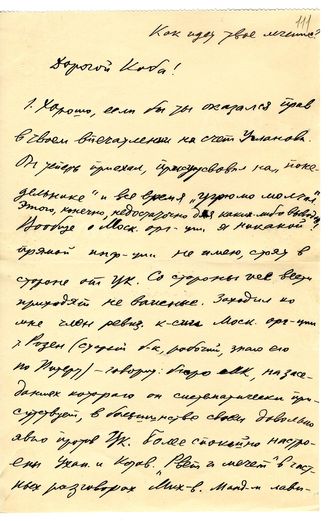 111
Как идет твое лечение?
Дорогой Коба!
1. Хорошо, если бы ты оказался прав
в твоем впечатлении на счет Угланова.
Он теперь приехал, присутствовал на "поне-
дельнике" и все время "угрюмо молчал".
Этого, конечно, недостаточно для каких либо выводов.
Вообще о Моск. орг-ции, я никакой
прямой инф-ции не имею, стоя в
стороне от ЦК. Со стороны же вести
приходят не важные. Заходил ко
мне член ревиз. к-сии Моск. орг-ции
т. Розен (старый б-к, рабочий, знаю его
по Питеру) – говорит: бюро МК, на засе-
даниях которого он систематически при-
сутствует, в большинстве своем довольно
явно против ЦК. Более спокойно настро-
ены Ухан. и "Рвет и мечет" в част-
ных разговорах Мих-в. Манд-м лави-